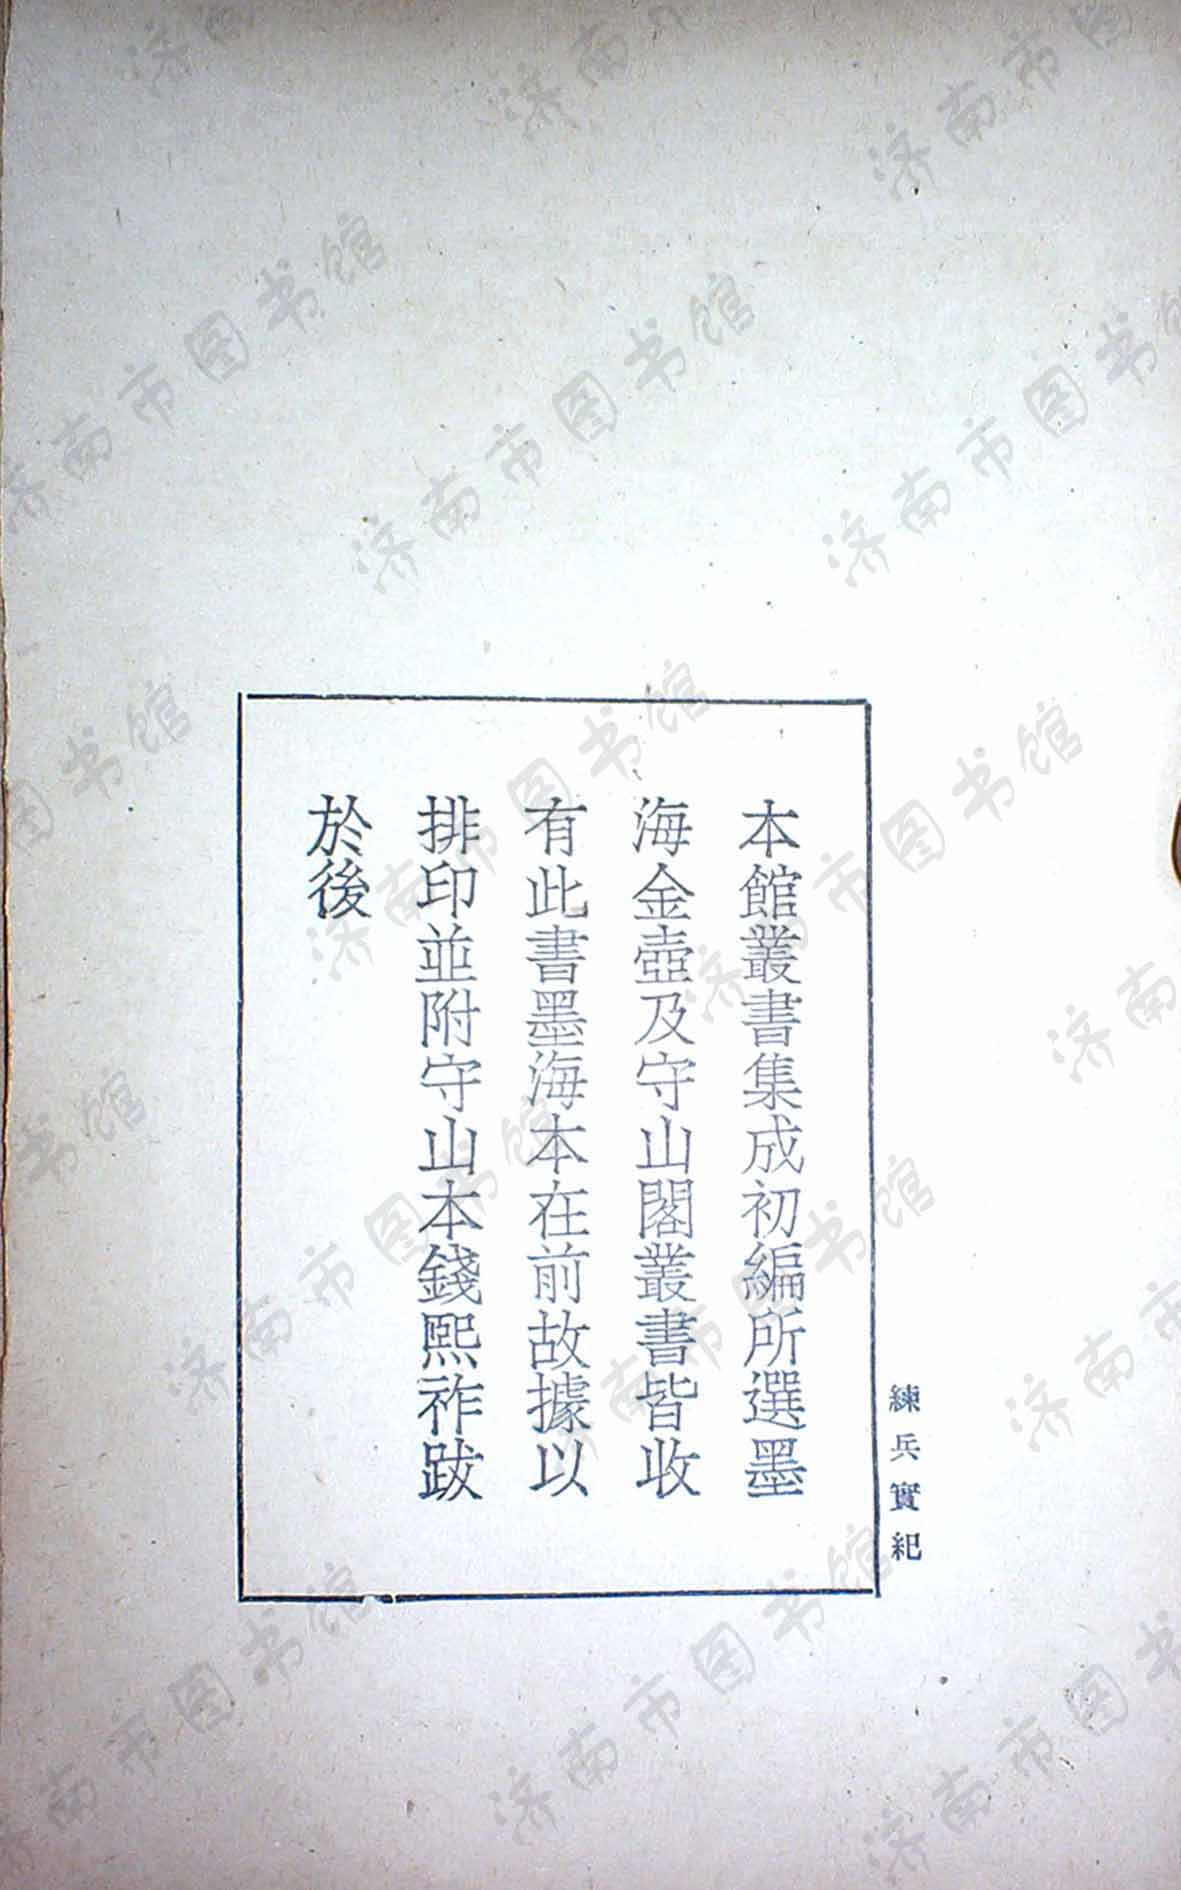 練兵實紀
本館叢書集成初編所選墨
海金壺及守山閣叢書皆收
有此書墨海本在前故據以
排印並附守山本錢熙祚跋
於後
济南市图书馆